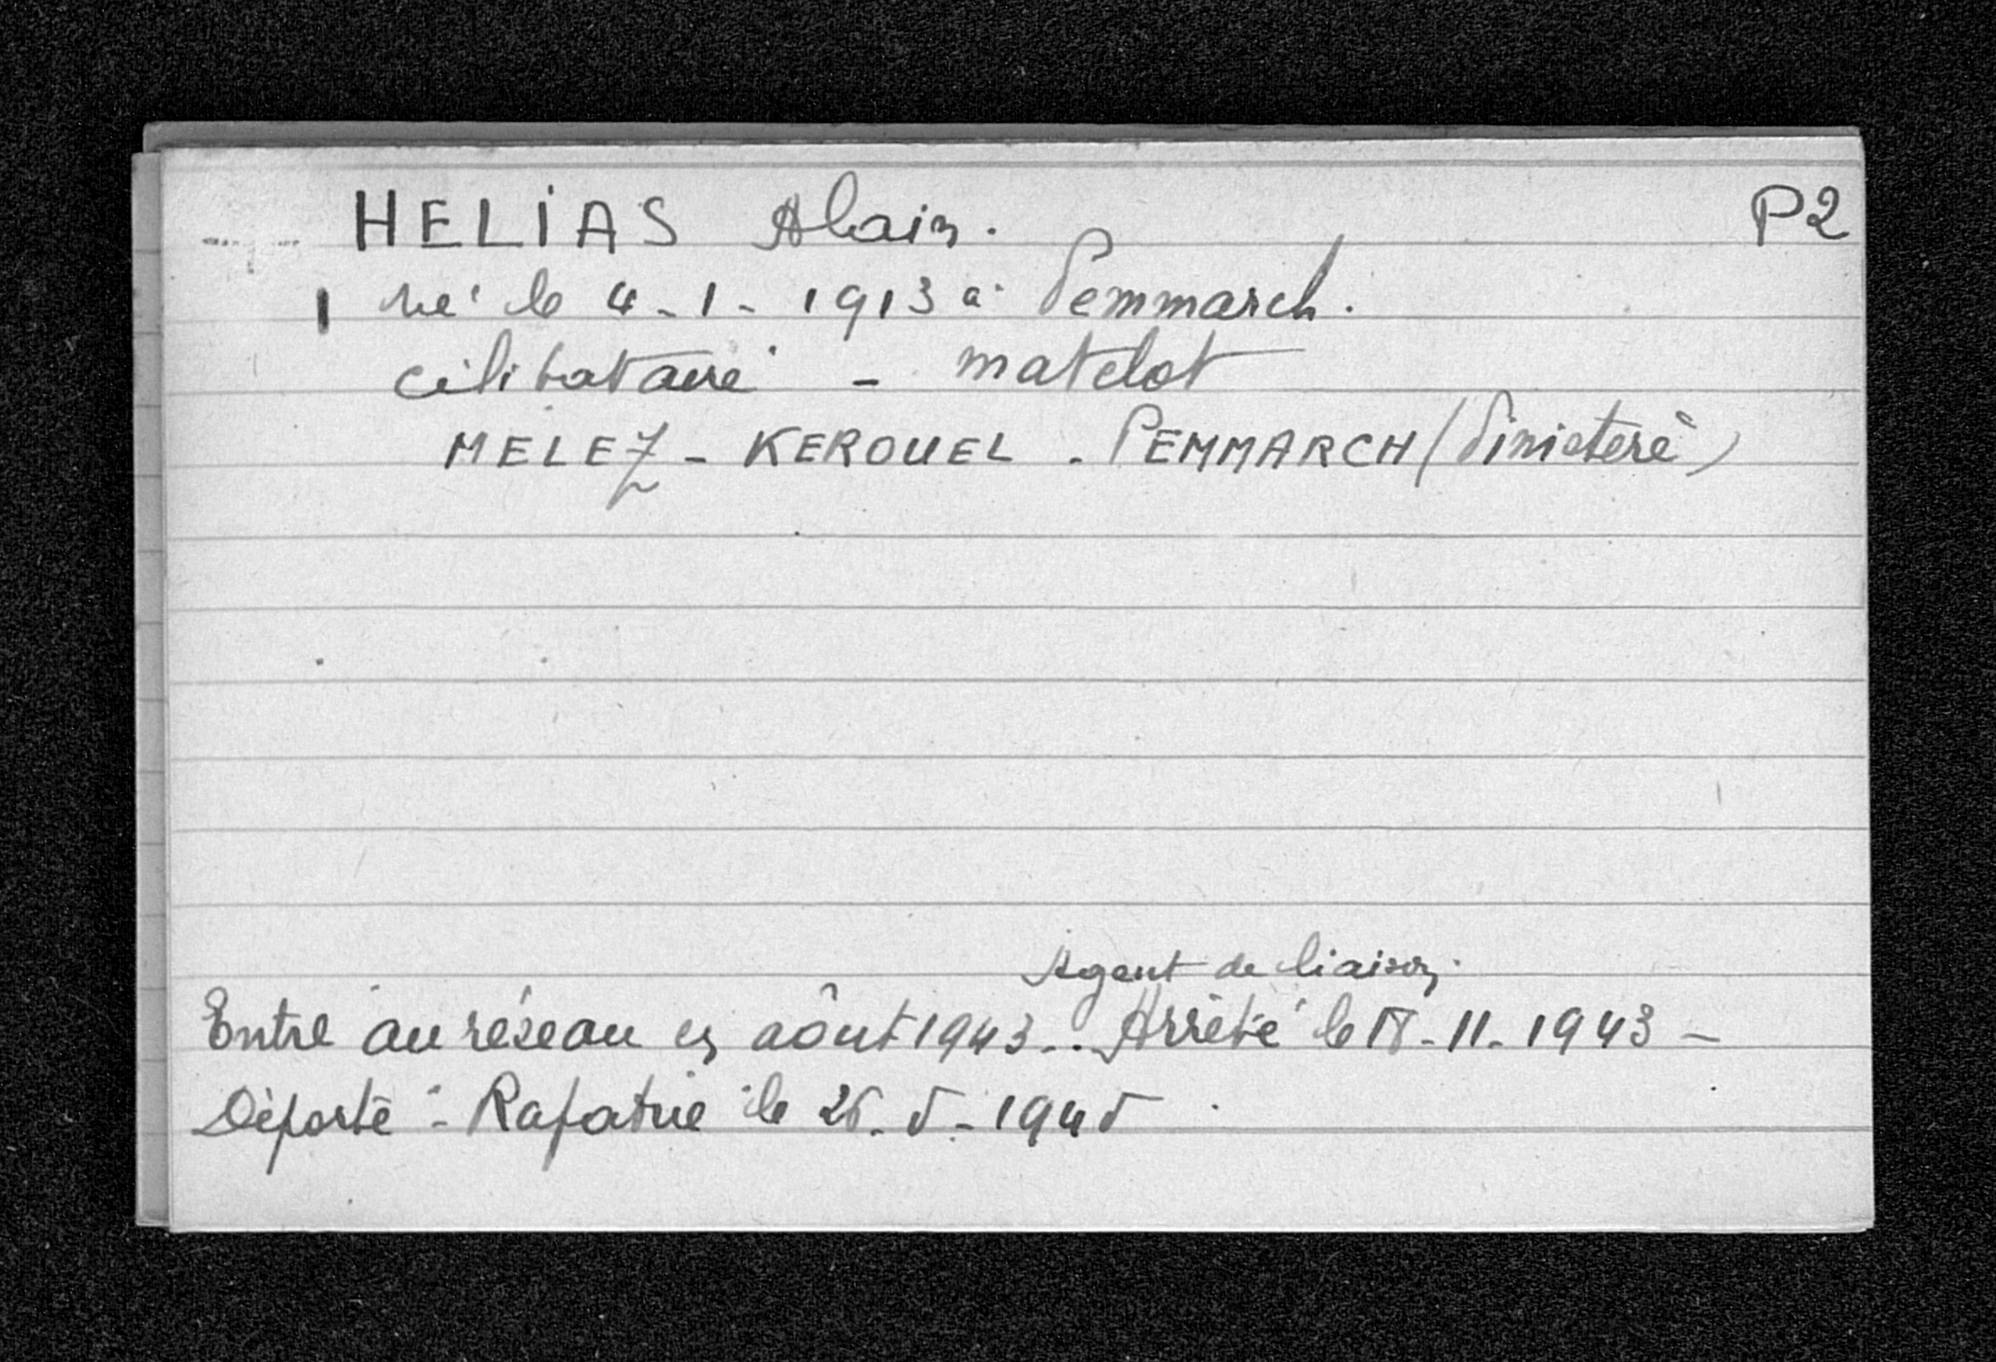 HELIAS Alain. P2
né le 4-1-1913 à Pemmarch.
célibataire - matelot
MELEZ - KEROUEL - PEMMARCH (Finistère)
Agent de liaison.
Entré au réseau en août 1943.. Arrêté le -11-1943 -
Déporté - Rapatrié le 26-5-1945